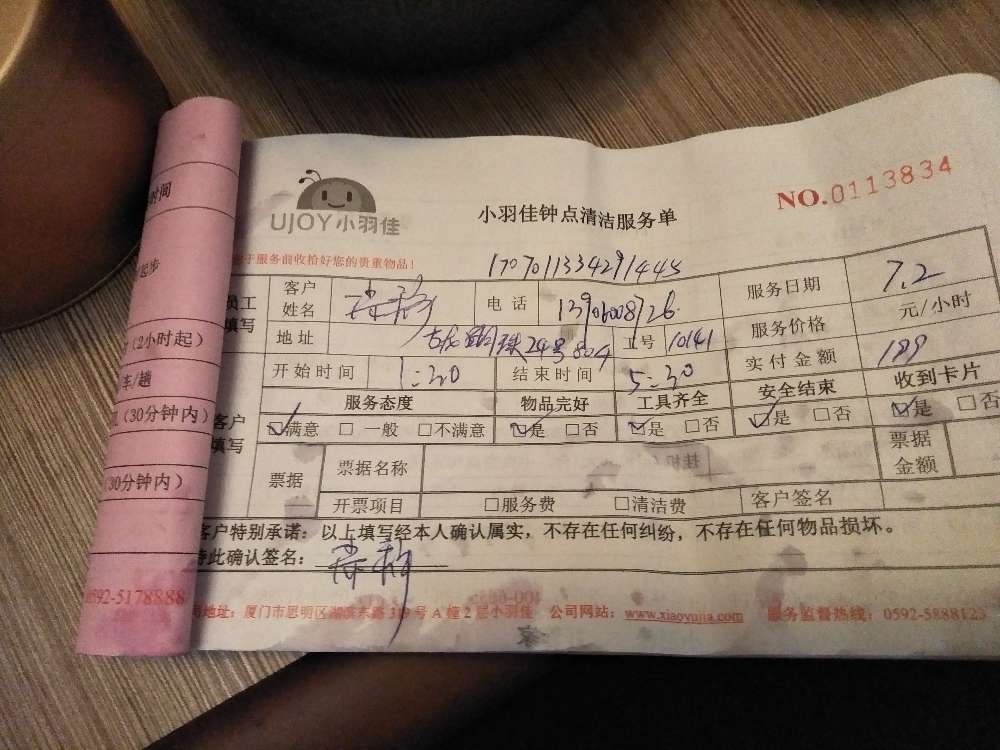 时间
起步
(2小时起)
车/趟
(30分钟内)
30分钟内)
0592-5178888
UJOY小羽佳
小羽佳钟点清洁服务单
NO.0113834
于服务前收拾好您的贵重物品!
员工填写
客户姓名
电话
服务日期 7.2
地址
24号804
工号 10141
服务价格 元/小时
开始时间 1:30
结束时间 5:30
实付金额 199
客户填写
服务态度 物品完好 工具齐全 安全结束 收到卡片
☑满意 □一般 □不满意 ☑是 □否 ☑是 □否 ☑是 □否 ☑是 □否
票据
票据名称
票据金额
开票项目 □服务费 □清洁费 客户签名
客户特别承诺:以上填写经本人确认属实,不存在任何纠纷,不存在任何物品损坏。
特此确认签名:
地址:厦门市思明区湖滨东路 号A幢2层小羽佳 公司网站:www.xiaoyujia.com 服务监督热线:0592-5888123